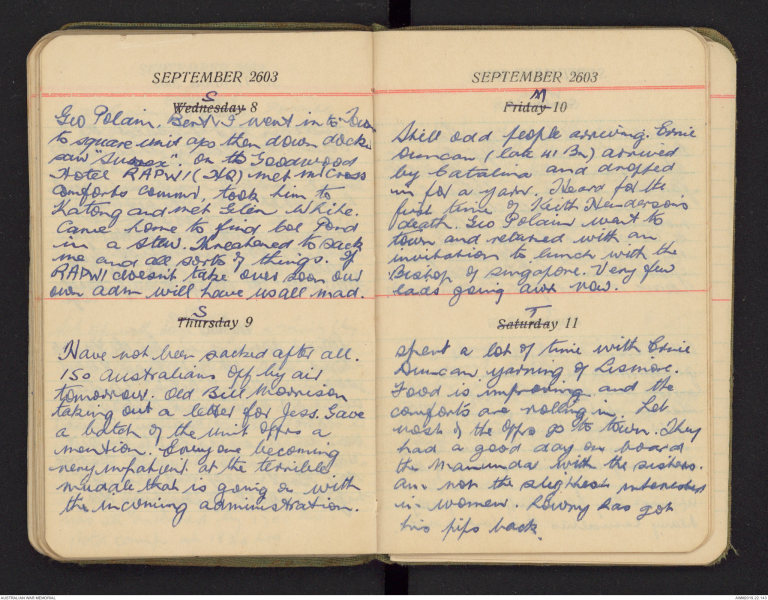 SEPTEMBER 2603
S
Wednesday 8
Geo Polain, Bert & I went in to Town
to square unit a/cs then down docks
saw "Sussex". On to Goodwood
Hotel RAPWI (HQ) met McCross
comforts commr, took him to
Katong and met Glen White.
Came home to find Col Pond
in a stew. Threatened to sack
me and all sorts of things. If
RAPWI doesn't take over soon our
own adm will have us all mad.
S
Thursday 9
Have not been sacked after all.
150 Australians off by air
tomorrow. Old Bill Morrison
taking out a letter for Jess. Gave
a batch of the unit offrs a
mention. Everyone becoming
very impatient at the terrible
muddle that is going on with
the incoming administration.
SEPTEMBER 2603
M
Friday 10
Still odd people arriving. Ernie
Duncan (late 41 Bn) arrived
by Catalina and dropped
in for a yarn. Heard for the
first time of Keith Henderson's
death. Geo Polain went to
town and returned with an
invitation to lunch with the
Bishop of Singapore. Very few
lads going away now.
T
Saturday 11
spent a lot of time with Ernie
Duncan yarning of Lismore.
Food is improving and the
comforts are rolling in. Let
most of the offrs go to town. They
had a good day on board
the Manunda with the sisters.
Am not the slightest interested
in women. Lowry has got
his pips back.
AUSTRALIAN WAR MEMORIAL
AWM2019.22.143